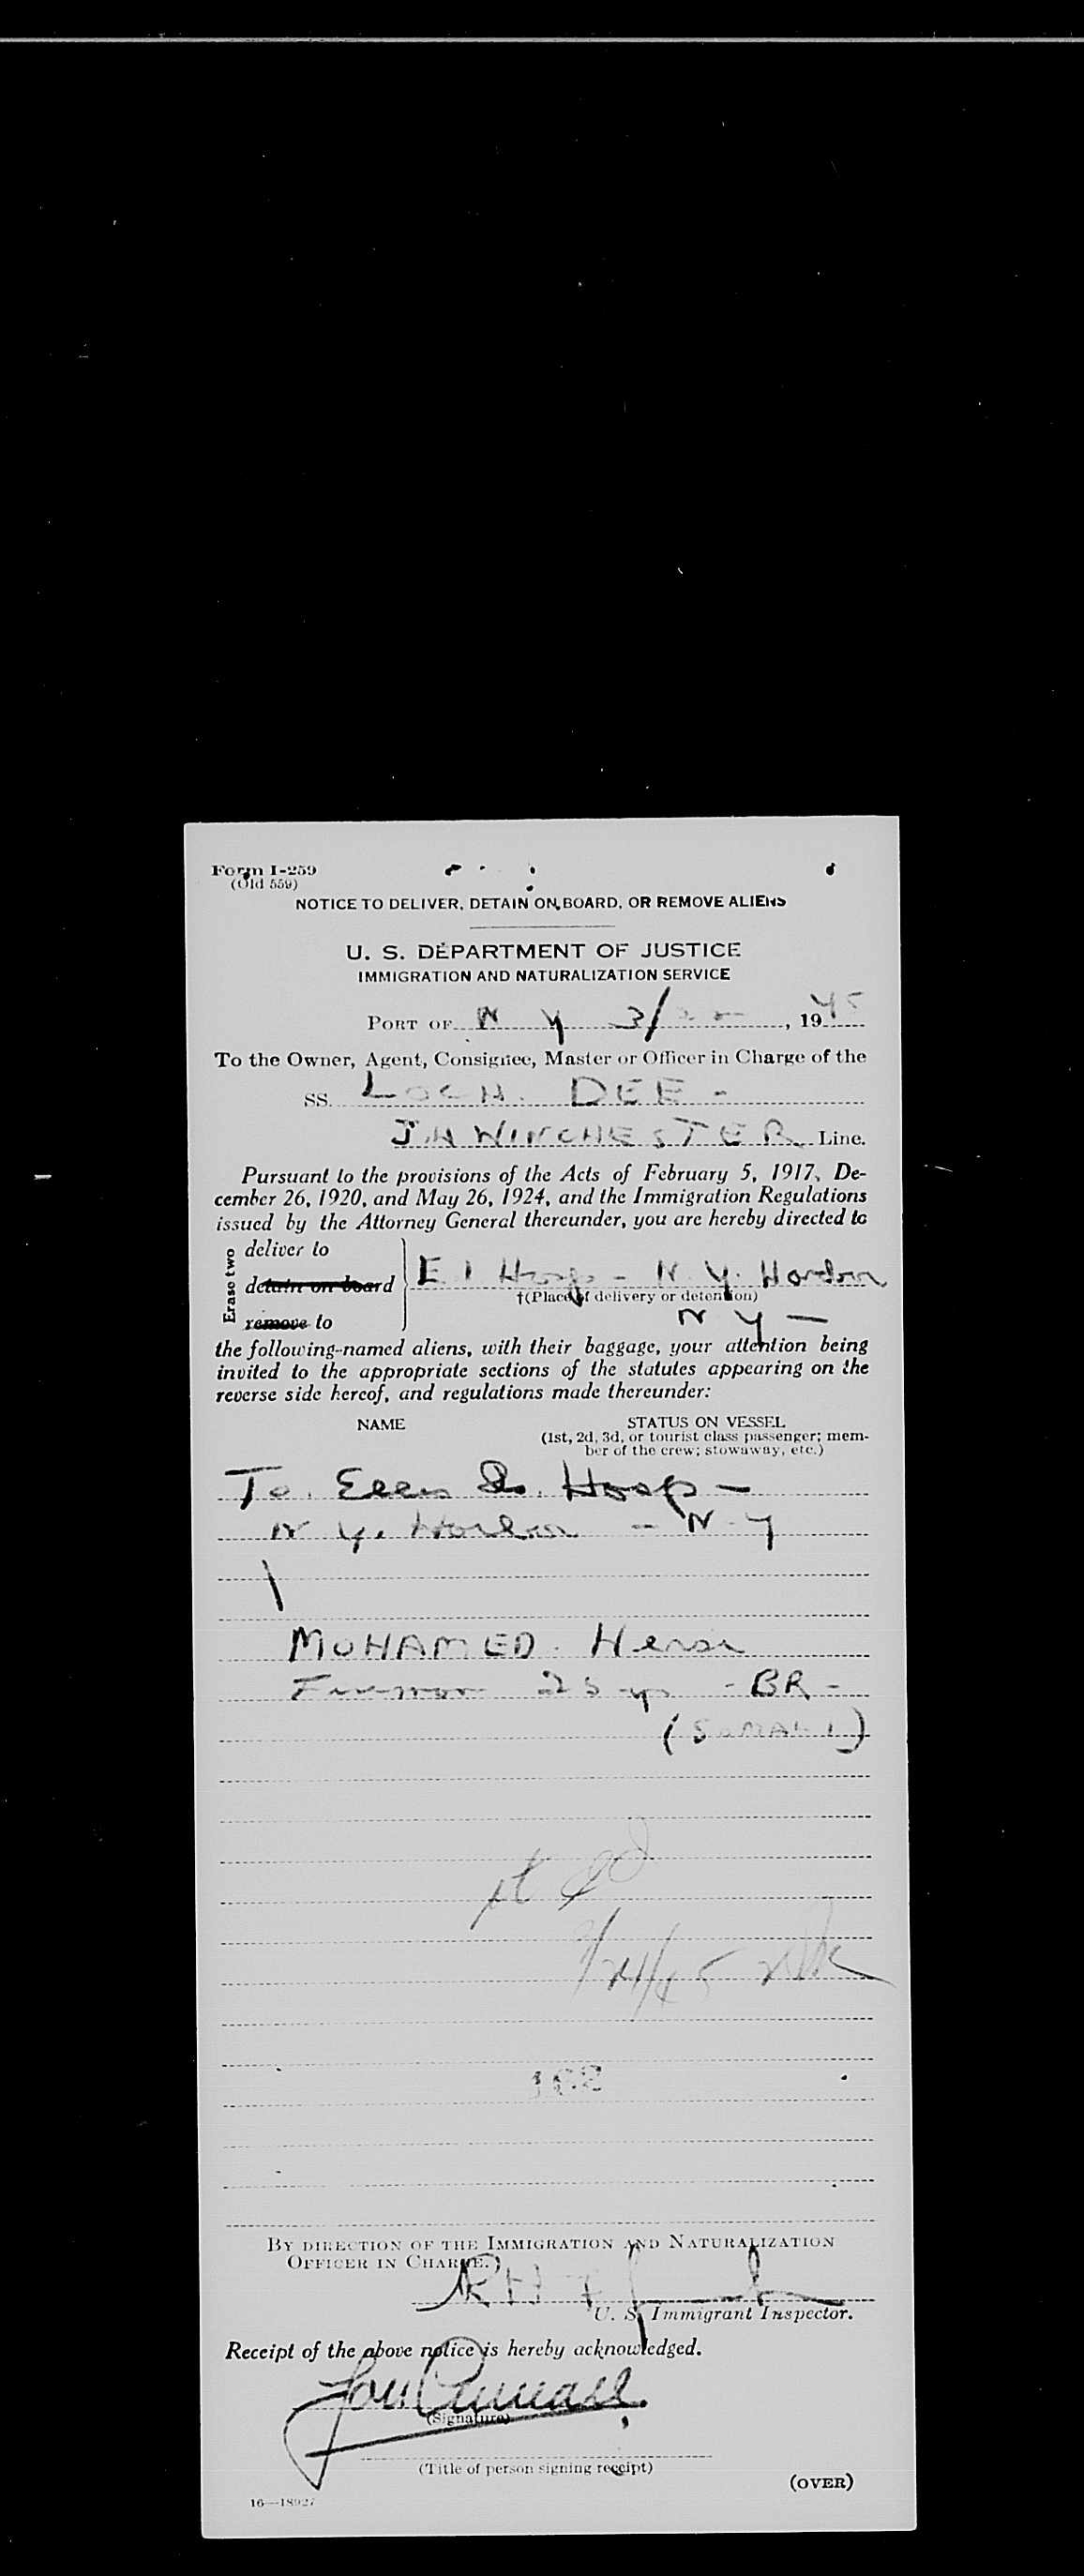 Form I-259
(Old 559)
NOTICE TO DELIVER, DETAIN ON BOARD, OR REMOVE ALIENS
U. S. DEPARTMENT OF JUSTICE
IMMIGRATION AND NATURALIZATION SERVICE
PORT OF N Y 3/ , 1945
To the Owner, Agent, Consignee, Master or Officer in Charge of the
SS. LOCH DEE -
J.H WINCHESTER Line.
Pursuant to the provisions of the Acts of February 5, 1917, De-
cember 26, 1920, and May 26, 1924, and the Immigration Regulations
issued by the Attorney General thereunder, you are hereby directed to
Erase two
deliver to
detain on board
remove to
E I Hosp - N. Y. Harbor
†(Place of delivery or detention)
N Y -
the following-named aliens, with their baggage, your attention being
invited to the appropriate sections of the statutes appearing on the
reverse side hereof, and regulations made thereunder:
NAME STATUS ON VESSEL
(1st, 2d, 3d, or tourist class passenger; mem-
ber of the crew; stowaway, etc.)
To Ellis Is. Hosp -
N Y. Harbor - N Y
MOHAMED. Hersi
Fireman 25 yr - BR -
(SOMALI)
3/24/45
162
BY DIRECTION OF THE IMMIGRATION AND NATURALIZATION
OFFICER IN CHARGE.
U. S. Immigrant Inspector.
Receipt of the above notice is hereby acknowledged.
(Signature)
(Title of person signing receipt)
(OVER)
16—18927